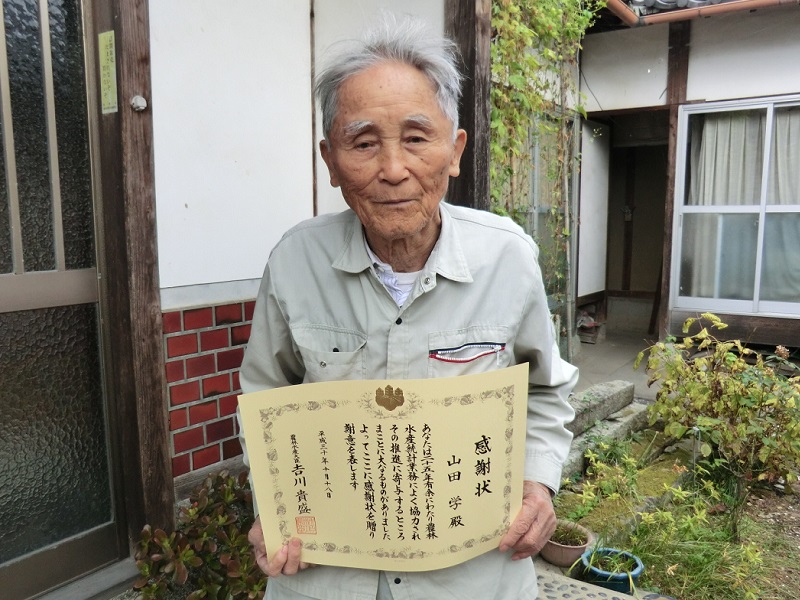 感謝状
山田 学 殿
あなたは二十五年有余にわたり農林
水産統計業務によく協力され
その推進に寄与するところ
まことに大なるものがありました
よってここに感謝状を贈り
謝意を表します
平成三十年十月十八日
農林水産大臣 吉川貴盛